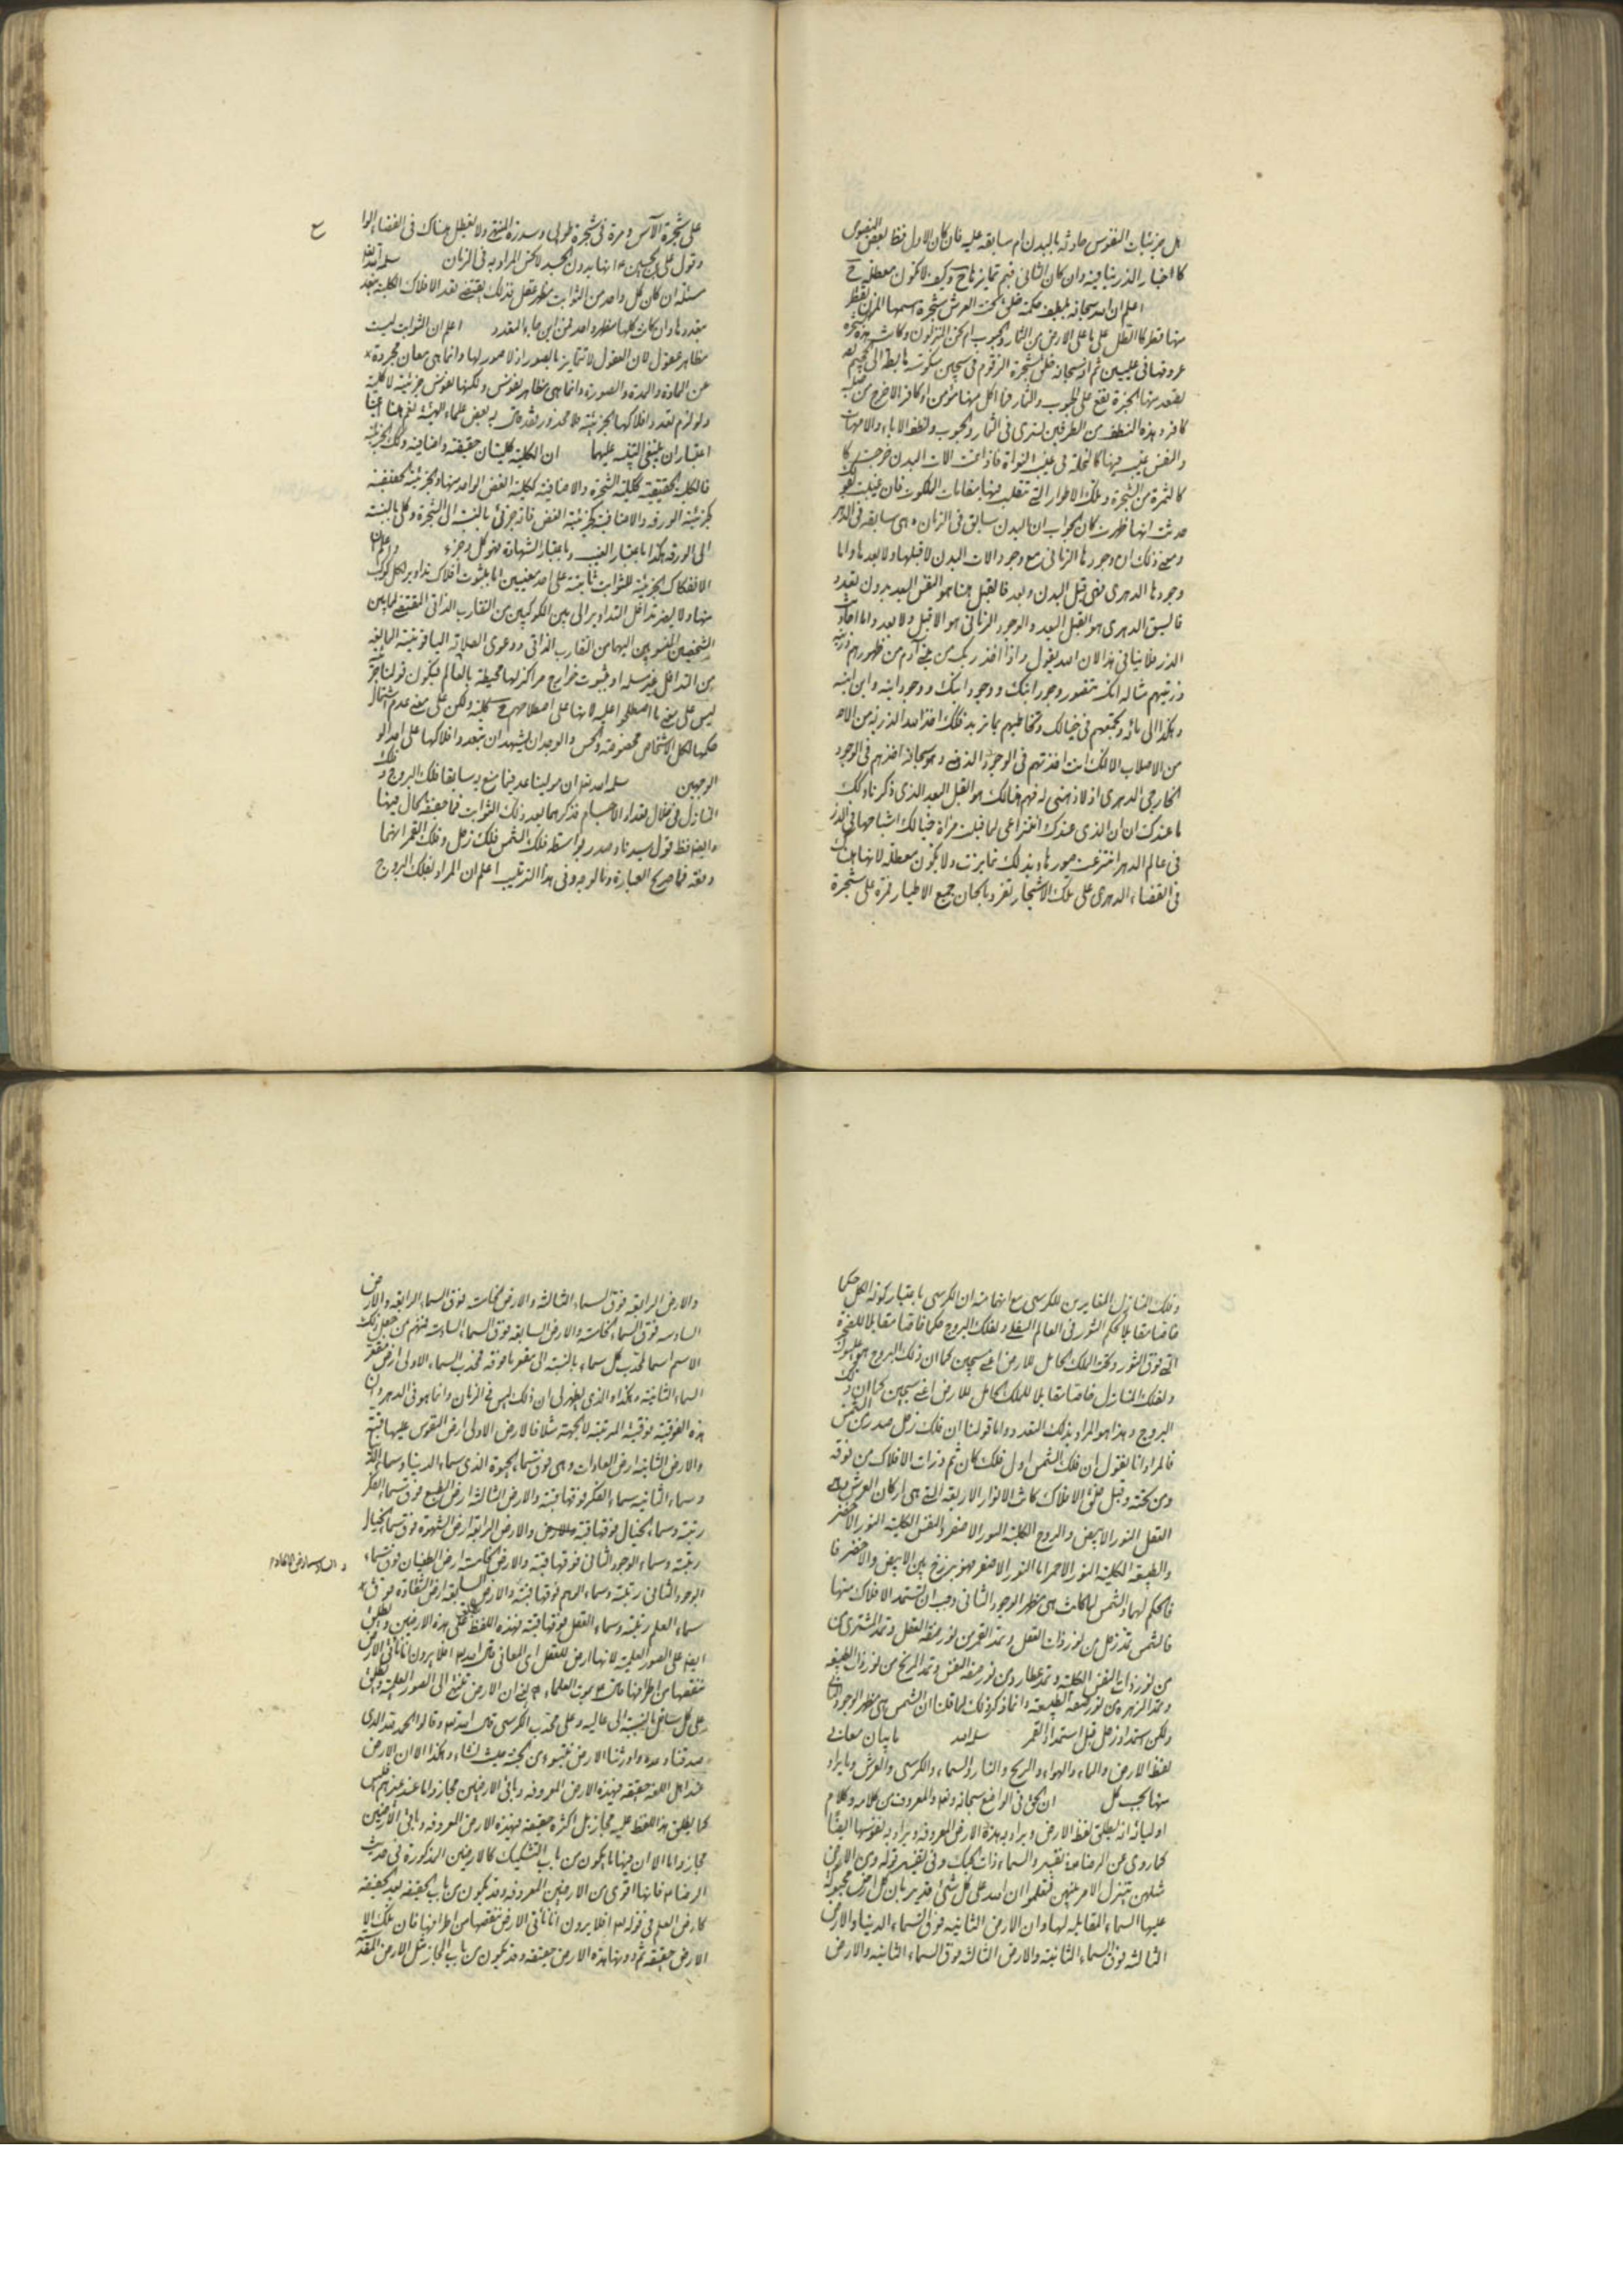 هل جزئيات النفوس حادثة بالبدن ام سابقة عليه فان كان الاول فما لبعض النصوص
كاخبار الذر ينافيه وان كان الثاني فبم تمايزها ح وكيف لا تكون معطلة ح
اعلم ان الله سبحانه بلطيف حكمته خلق تحت العرش شجرة اسمها المزن تقطر
منها قطرا كالطل على ما على الارض من الثمار والحبوب
عروقها في عليين ثم انه سبحانه خلق شجرة الزقوم في سجين
يصعد منها ابخرة تقع على الحبوب والثمار فما اكل منها مؤمن او كافر الا خرج من صلبه
كافر وهذه النطف من الطرفين تسري في الثمار والحبوب ونطف الاباء والامهات
والنفس غيب فيها كالنخلة في غيب النواة فاذا تمت الات البدن خرجت
كالثمرة من الشجرة وتلك الاطوار التي تتقلب فيها مقامات الملكوت فان عنيت بقولك
حدثت انها ظهرت كان الجواب ان البدن سابق في الزمان وهي سابقة في الدهر
ومعنى ذلك ان وجودها الزماني مع وجود الات البدن لا قبلها ولا بعدها واما
وجودها الدهري فهي قبل البدن وبعد فالقبل هنا هو النفس البعد بدون تعدد
فالسبق الدهري هو القبل البعد والوجود الزماني هو الا قبل ولا بعد واما احاديث
الذر فلا ينافي هذا لان الله يقول واذ اخذ ربك من بني آدم من ظهورهم ذريتهم
ذريتهم مثاله انك تتصور وجود ابنك ووجود ابنك ووجود ابنه وابن ابنه
وهكذا الى مائة وتجمعهم في خيالك وتخاطبهم بما تريد فكذلك اخذ الله الذرية من
من الاصلاب الا انك انت اخذتهم في الوجود الذهني وهو سبحانه اخذهم في الوجود
الخارجي الدهري اذ لا ذهني له فهم هنالك هو القبل البعد الذي ذكرناه ولك
ما عندك ان الذي عندك انتزاعي لما قبلت مرآة خيالك اشباحها في
في عالم الدهر انتزعت صورها وبذلك تمايزت ولا تكون معطلة لانها هناك
في الفضاء الدهري على تلك الاشجار تغرد بالحان جميع الاطيار فمرة على شجرة
على شجرة الآس ومرة في شجرة طوبى وسدرة المنتهى ولا تعطل هناك في الفضاء
وقول علي بن الحسين ع انها بدون الجسد لا تحس المراد به في الزمان سلمه الله تعالى
مسئلة ان كان كل واحد من الثوابت مظهر عقل فذلك يقتضي تعدد الافلاك الكلية بعدد
بعددها وان كانت كلها مظهر واحد فمن اين جاء التعدد اعلم ان الثوابت ليست
مظاهر عقول لان العقول لا تتمايز بالصور اذ لا صور لها وانما هي معان مجردة
عن المادة والمدة والصورة وانما هي مظاهر نفوس ولكنها نفوس جزئية لا كلية
ولو لزم تعدد افلاكها الجزئية فلا محذور بعض علماء الهيئة
اعتباران ينبغي التنبيه عليهما ان الكلية كليتان حقيقية واضافية وكذلك الجزئية
فالكلية الحقيقية ككلية الشجرة والاضافية ككلية الغصن الواحد منها والجزئية الحقيقية
كجزئية الورقة والاضافية كجزئية الغصن فانه جزئي بالنسبة الى الشجرة وكلي بالنسبة
الى الورقة هكذا باعتبار الغيب وباعتبار الشهادة هو كل وجزء
الافلاك الجزئية للثوابت ثابتة على احد معنيين اما بثبوت افلاك تداوير لكل كوكب
منها ولا يضر تداخل التداوير الى بين الكوكبين من التقارب الذاتي المقتضي
الشخصين المنسوبين اليهما من التقارب الذاتي ودعوى الصلابة الياقوتية المانعة
من التداخل غير مسلمة او بثبوت خوارج مراكز لها محيطة بالعالم فيكون قولنا جزئية
ليس على معنى ما اصطلحوا عليه لانها على اصطلاحهم ح كلية ولكن على معنى عدم اشتمال
حكمها لكل الاشخاص مخصوصة والحس والوجدان يشهدان بتعدد افلاكها على احد
الوجهين سلمه الله تعالى ان مولينا عد فيما منع به سابقا فلك البروج و فلك
المنازل في خلال تعداد الاجسام فذكرهما بعد ذلك الثوابت فما حقيقة الحال فيها
وايضا فظ قول سيدنا وصدر بواسطة فلك الشمس فلك زحل وفلك القمر انهما
دفعة فما صريح العبارة وما الوجه في هذا الترتيب اعلم ان المراد بفلك البروج
وفلك المنازل المغايرين للكرسي مع انهما منه ان الكرسي باعتبار كونه الكل حكما
خاصا مقابلا لحكم الثور في العالم السفلي ولفلك البروج حكما خاصا مقابلا للصخرة
التي فوق الثور وتحت الملك الحامل للارض اعني سجين كما ان فلك البروج هو عليون
ولفلك المنازل خاصا مقابلا للملك الحامل للارض اعني سجين كما ان
البروج وهذا هو المراد بذلك التعدد واما قولنا ان فلك زحل صدر من الشمس
فالمراد انا نقول ان فلك الشمس اول فلك كان ثم دارت الافلاك من فوقه
ومن تحته وقبل خلق الافلاك كانت الانوار الاربعة التي هي اركان العرش وهي
العقل النور الابيض والروح الكلية النور الاصفر والنفس الكلية النور الاخضر
والطبيعة الكلية النور الاحمر اما النور الاصفر فهو برزخ بين الابيض والاخضر
فالحكم لهما والشمس لما كانت هي مظهر الوجود الثاني وجب ان تستمد الافلاك منها
فالشمس تمد زحل من نور ذات العقل وتمد القمر من نور صفة العقل وتمد المشتري
من نور ذات النفس الكلية وتمد عطارد من نور صفة النفس وتمد المريخ من نور ذات الطبيعة
وتمد الزهرة من نور صفة الطبيعة وانما ذكر ذلك لما قلنا ان الشمس هي مظهر الوجود الثاني
ولكن استمداد زحل قبل استمداد القمر سلمه الله ما بيان معاني
لفظ الارض والماء والهواء والريح والنار والسماء والكرسي والعرش وما يراد
منها بحسب كل ان الحق في الواضع سبحانه وتعالى والمعروف من كلامه وكلام
اوليائه انه يطلق لفظ الارض ويراد به هذه الارض المعروفة ويراد به نفوسها ايضا
كما روي عن الرضا ع في تفسير والسماء ذات الحبك وفي تفسير قوله ومن الارض
مثلهن يتنزل الامر بينهن لتعلموا ان الله على كل شيء قدير بان كل ارض
عليها السماء المقابلة لها وان الارض الثانية فوق السماء الدنيا والارض
الثالثة فوق السماء الثانية والارض الثالثة فوق السماء الثانية والارض
والارض الرابعة فوق السماء الثالثة والارض الخامسة فوق السماء الرابعة والارض
السادسة فوق السماء الخامسة والارض السابعة فوق السماء السادسة فمنهم من جعل ذلك
الاسم اسما لمحدب كل سماء بالنسبة الى مقعر ما فوقه فمحدب السماء الاولى ارض مقعر
السماء الثانية وهكذا والذي يظهر لي ان ذلك ليس في الزمان وانما هو في الدهر وان
هذه الفوقية فوقية المرتبة لا الجهة مثلا فالارض الاولى ارض النفوس عليها قبة
والارض الثانية ارض العادات وهي فوق سماء الحيوة الذي سماء الدنيا
وسماء الثانية سماء الفكر فوقها قبة والارض الثالثة ارض الطبع فوق سماء الفكر
رتبة وسماء الخيال فوقها قبة والارض الرابعة ارض الشهوة فوق سماء الخيال
رتبة وسماء الوجود الثاني فوقها قبة والارض الخامسة ارض الطغيان فوق سماء
الوجود الثاني رتبة وسماء الوهم فوقها قبة والارض السابعة ارض الشقاوة فوق
سماء العلم رتبة وسماء العقل فوقها قبة فهذه اللفظ على هذه الارضين ويطلق
ايضا على الصور العلمية لانها ارض للعقل اي المعاني قال الله تعالى افلا يرون انا نأتي الارض
ننقصها من اطرافها قال ع بموت العلماء ع يعني ان الارض تنتهي الى الصور العلمية ويطلق
على كل سافل بالنسبة الى عاليه وعلى محدب الكرسي قال الله تعالى وقالوا الحمد لله الذي
صدقنا وعده واورثنا الارض نتبوء من الجنة حيث نشاء وهكذا الا ان الارض
عند اهل اللغة حقيقة فهذه الارض المعروفة وباقي الارضين مجاز واما عند غيرهم فليس
كما يطلق هذا اللفظ عليه مجاز بل اكثره حقيقة فهذه الارض المعروفة وباقي الارضين
مجاز واما الا ان فيها ما يكون من باب التشكيك كالارضين المذكورة في حديث
الرضا ع فانها اقوى من الارضين المعروفة وقد يكون من باب الحقيقة بعد الحقيقة
كارض العلم في قوله تعالى افلا يرون انا نأتي الارض ننقصها من اطرافها فان تلك
الارض حقيقة ثم دونها هذه الارض حقيقة وقد يكون من باب المجاز مثل الارض المقدسة